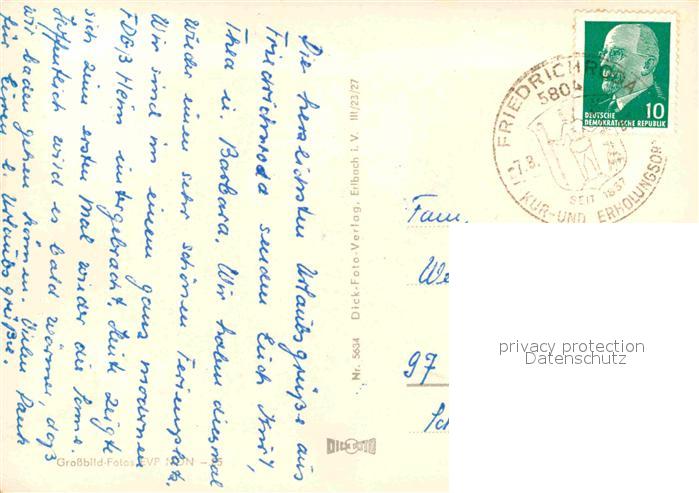 Die herzlichsten Urlaubsgrüße aus
Friedrichroda senden Euch Kurt,
Thea u. Barbara. Wir haben diesmal
wieder einen sehr schönen Ferienplatz.
Wir sind in einem ganz modernen
FDGB Heim untergebracht. Heute zeigte
sich zum ersten Mal wieder die Sonne.
Hoffentlich wird es bald wärmer, daß
wir baden gehen können. Vielen Dank
für Euren l. Urlaubsgrüße.
Großbild-Fotos EVP MDN –,25
Nr. 5634 Dick-Foto-Verlag, Erlbach i. V. III/23/27
DICK FOTO
FRIEDRICHRODA
5804
-7.8.
SEIT 1837
KUR-UND ERHOLUNGSORT
10
DEUTSCHE
DEMOKRATISCHE REPUBLIK
Fam.
We
97
Sc
privacy protection
Datenschutz